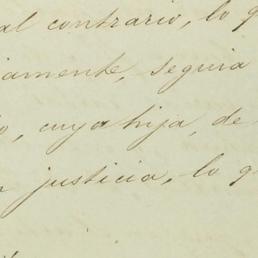 al contrario, lo q
iamente, seguia
o, cuya hija, de
n justicia, lo q